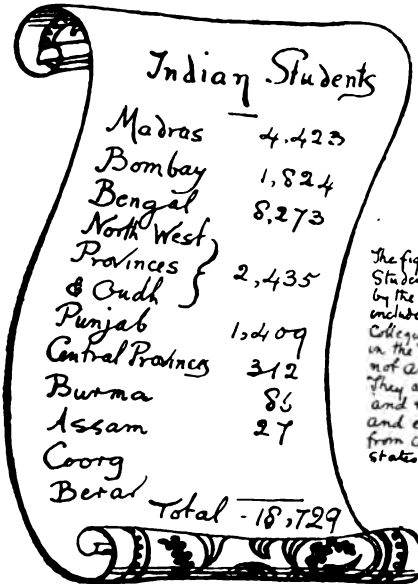 Indian Students
Madras 4,423
Bombay 1,824
Bengal 8,273
North West
Provinces
& Oudh 2,435
Punjab 1,409
Central Provinces 312
Burma
Assam 27
Coorg
Berar
Total - 18,729
The fig
Stude
by the
includ
Colleg
in the
not a
They a
and
and e
from c
states